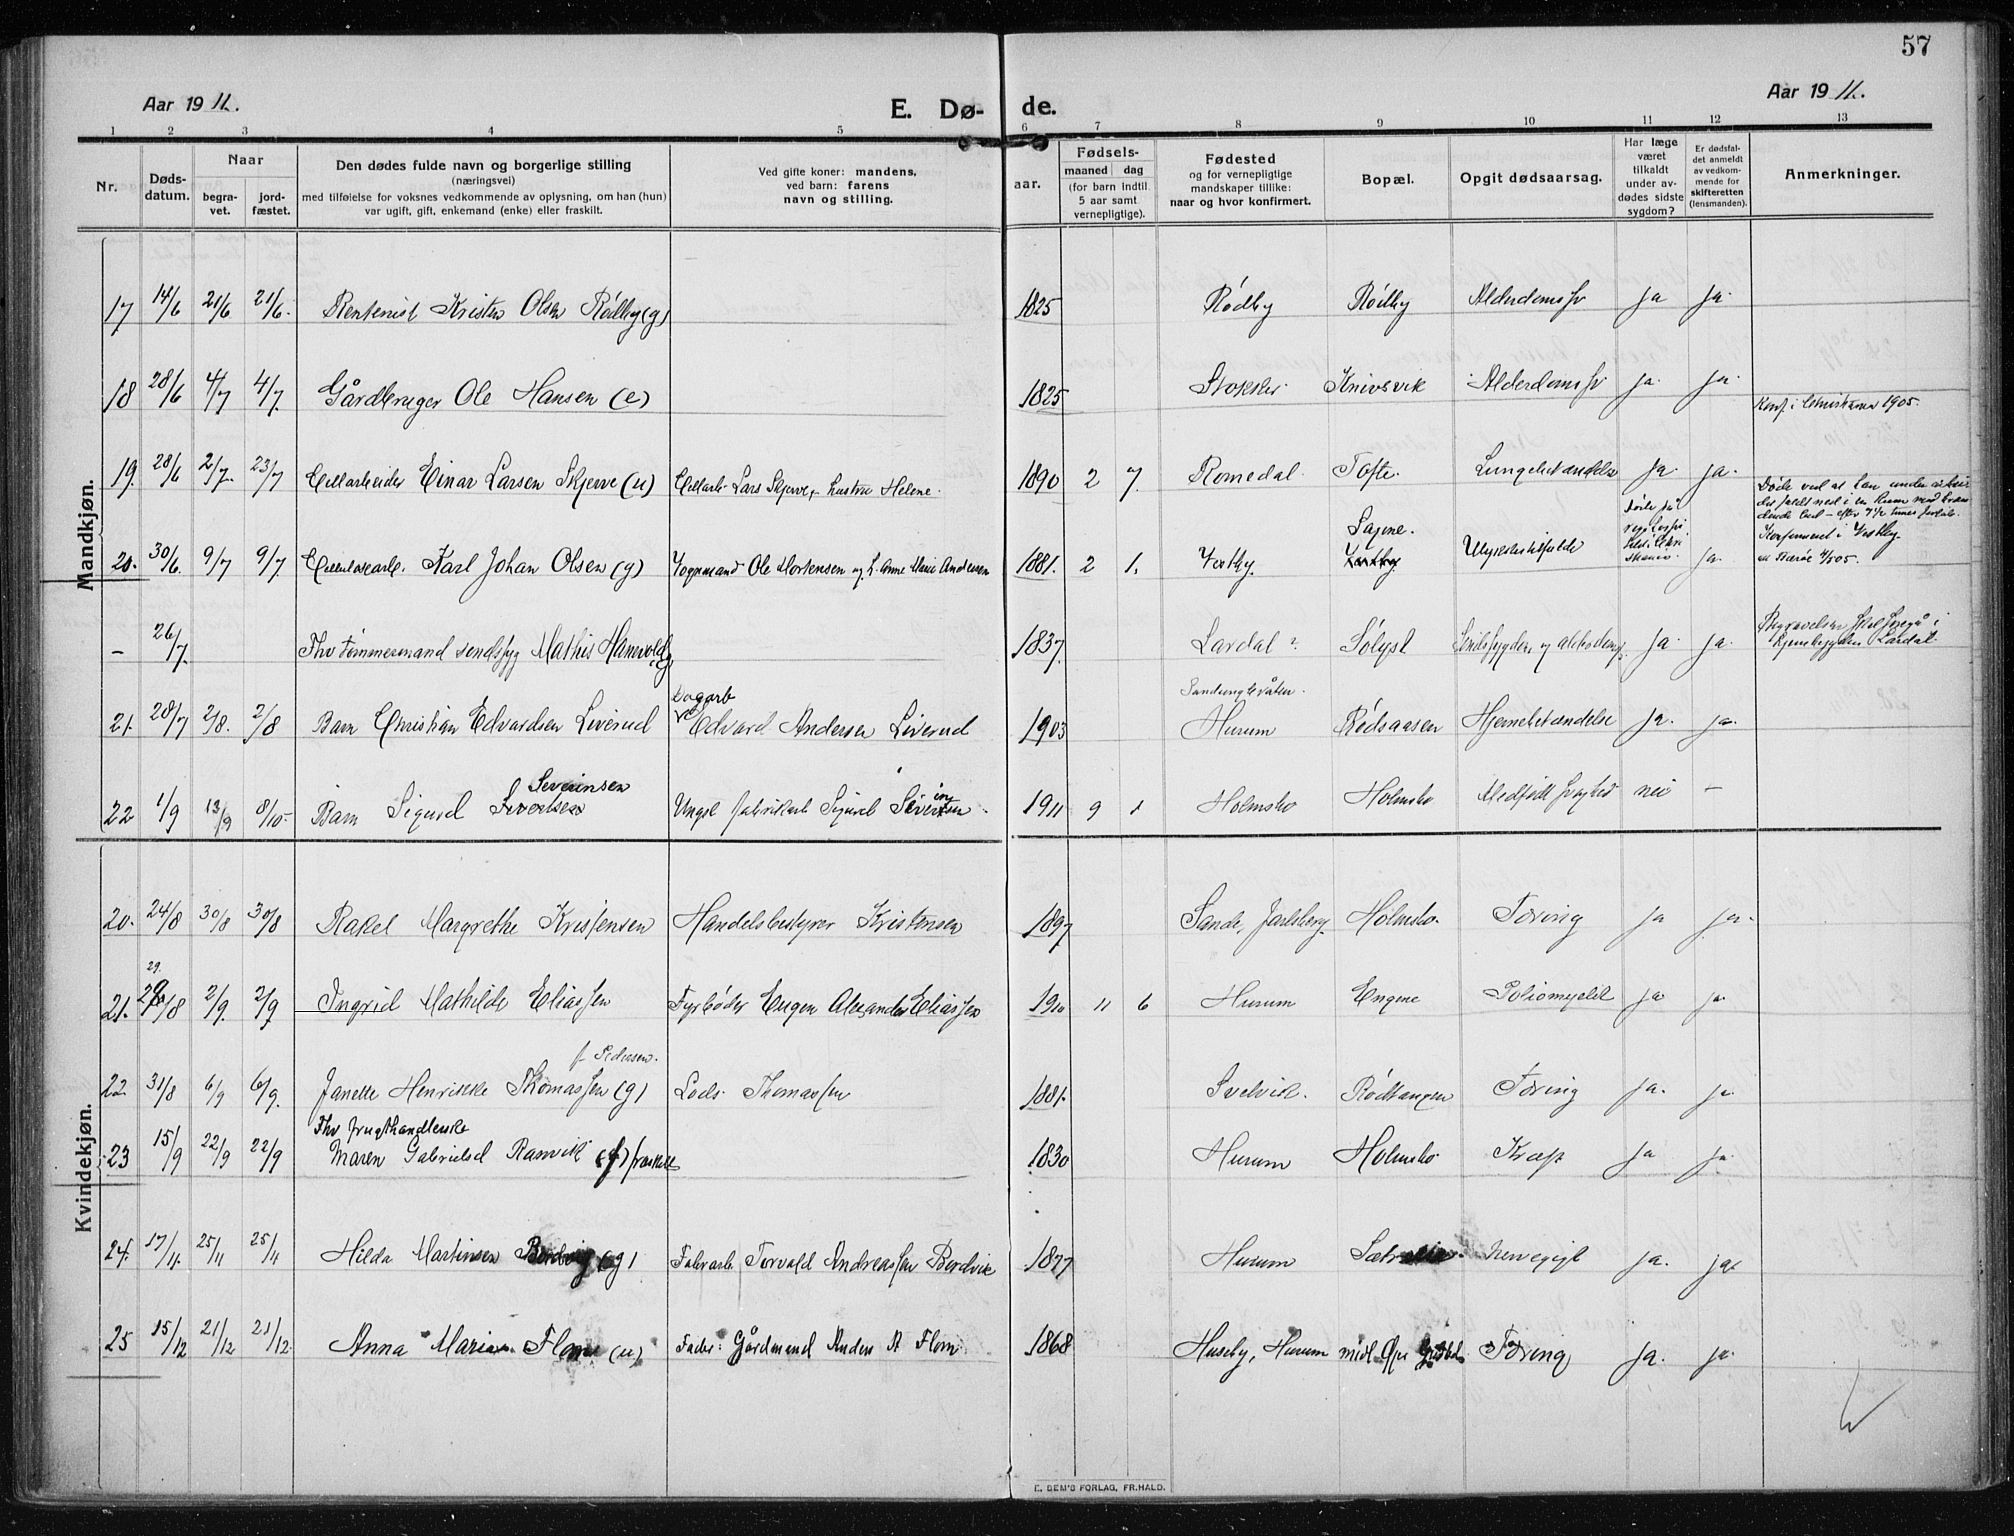 57
Aar 1911.
E. Dø-
de.
Aar 1911.
1 2 3 4 5 6 7 8 9 10 11 12 13
Nr.
Døds-
datum.
Naar
begra-
vet.
jord-
fæstet.
Den dødes fulde navn og borgerlige stilling
(næringsvei)
med tilføielse for voksnes vedkommende av oplysning, om han (hun)
var ugift, gift, enkemand (enke) eller fraskilt.
Ved gifte koner: mandens,
ved barn: farens
navn og stilling.
aar.
Fødsels-
maaned dag
(for barn indtil
5 aar samt
vernepligtige).
Fødested
og for vernepligtige
mandskaper tillike:
naar og hvor konfirmert.
Bopæl.
Opgit dødsaarsag.
Har læge
været
tilkaldt
under av-
dødes sidste
sygdom?
Er dødsfal-
det anmeldt
av vedkom-
mende for
skifteretten
(lensmanden).
Anmerkninger.
Mandkjøn.
17 14/6 21/6 21/6 Rentenist Kristen Olsen Rødby (g) 1825 Rødby Rødby Alderdomssv ja ja
18 28/6 4/7 4/7 Gårdbruger Ole Hansen (e) 1825 Stokker Knivsvik Alderdomssv ja ja
Konf. i Christiania 1905.
19. 28/6 2/7 23/7 Cellarbeider Einar Larsen Skjerve (u) Cellarb. Lars Skjerve, hustru Helene. 1890 2 7. Romedal. Tofte. Lungebetændelse ja. ja.
20. 30/6 9/7 9/7 Cellulosearb. Karl Johan Olsen (g) Vognmand Ole Mortensen og h. Anne Marie Andersen 1881. 2 1. Vestby Sagene. Vestby Ulykkestilfælde ja.
Døde ved at han under arbei
det faldt ned i
Konfirmeret i Vestby
- 26/7 Fhv Tømmermand sindssyg Mathis Hanevold 1837. Lardal? Sølyst Sindssygdom og alderdomssv ja ja.
Begravelsen skal foregå i
Hjembygden Lardal
21. 28/7 2/8. 2/8 Barn Christian Edvardsen Liverud Dagarb
Edvard Andersen Liverud 1903 Sandungbråten.
Hurum Rødsaasen Hjernebetændelse ja. ja.
22 1/9 13/9 8/10 Barn Sigurd Sivertsen Severinsen Ungk. fabrikarb Sigurd Severinsen 1911 9 1 Holmsbo Holmsbo Medfødt svaghed nei -
Kvindekjøn.
20. 24/8 30/8 30/8 Rakel Margrethe Kristensen Handelsbestyrer Kristensen 1897 Sande, Jarlsberg. Holmsbo. Tæring ja ja
21. 29/8 29. 2/9. 2/9 Ingrid Mathilde Eliassen Fyrbøder Eugen Alexander Eliassen 1910 11 6 Hurum Engene Poliomyelit ja ja
22 31/8 6/9 6/9. Janette Henrikke Thomassen (g) f. Pedersen. Lods. Thomassen 1881. Svelvik. Rødtangen Tæring ja. ja.
23 15/9 22/9 22/9 Fhv frugthandlerske
Maren Gabrielsd Ramvik (f) fraskilt 1830 Hurum Holmsbo Kræft ja ja.
24. 17/11. 25/11 25/11 Hilda Martinsen Berdvig (g) Fabrarb Torvald Andreassen Berdvik 1877 Hurum Nervegigt ja. ja
25 15/12 21/12 21/12 Anna Marie Flom (u) Fader: Gårdmand Anders A Flom 1868 Huseby, Hurum Tæring ja. ja.
E. SEM'S FORLAG, FR.HALD.